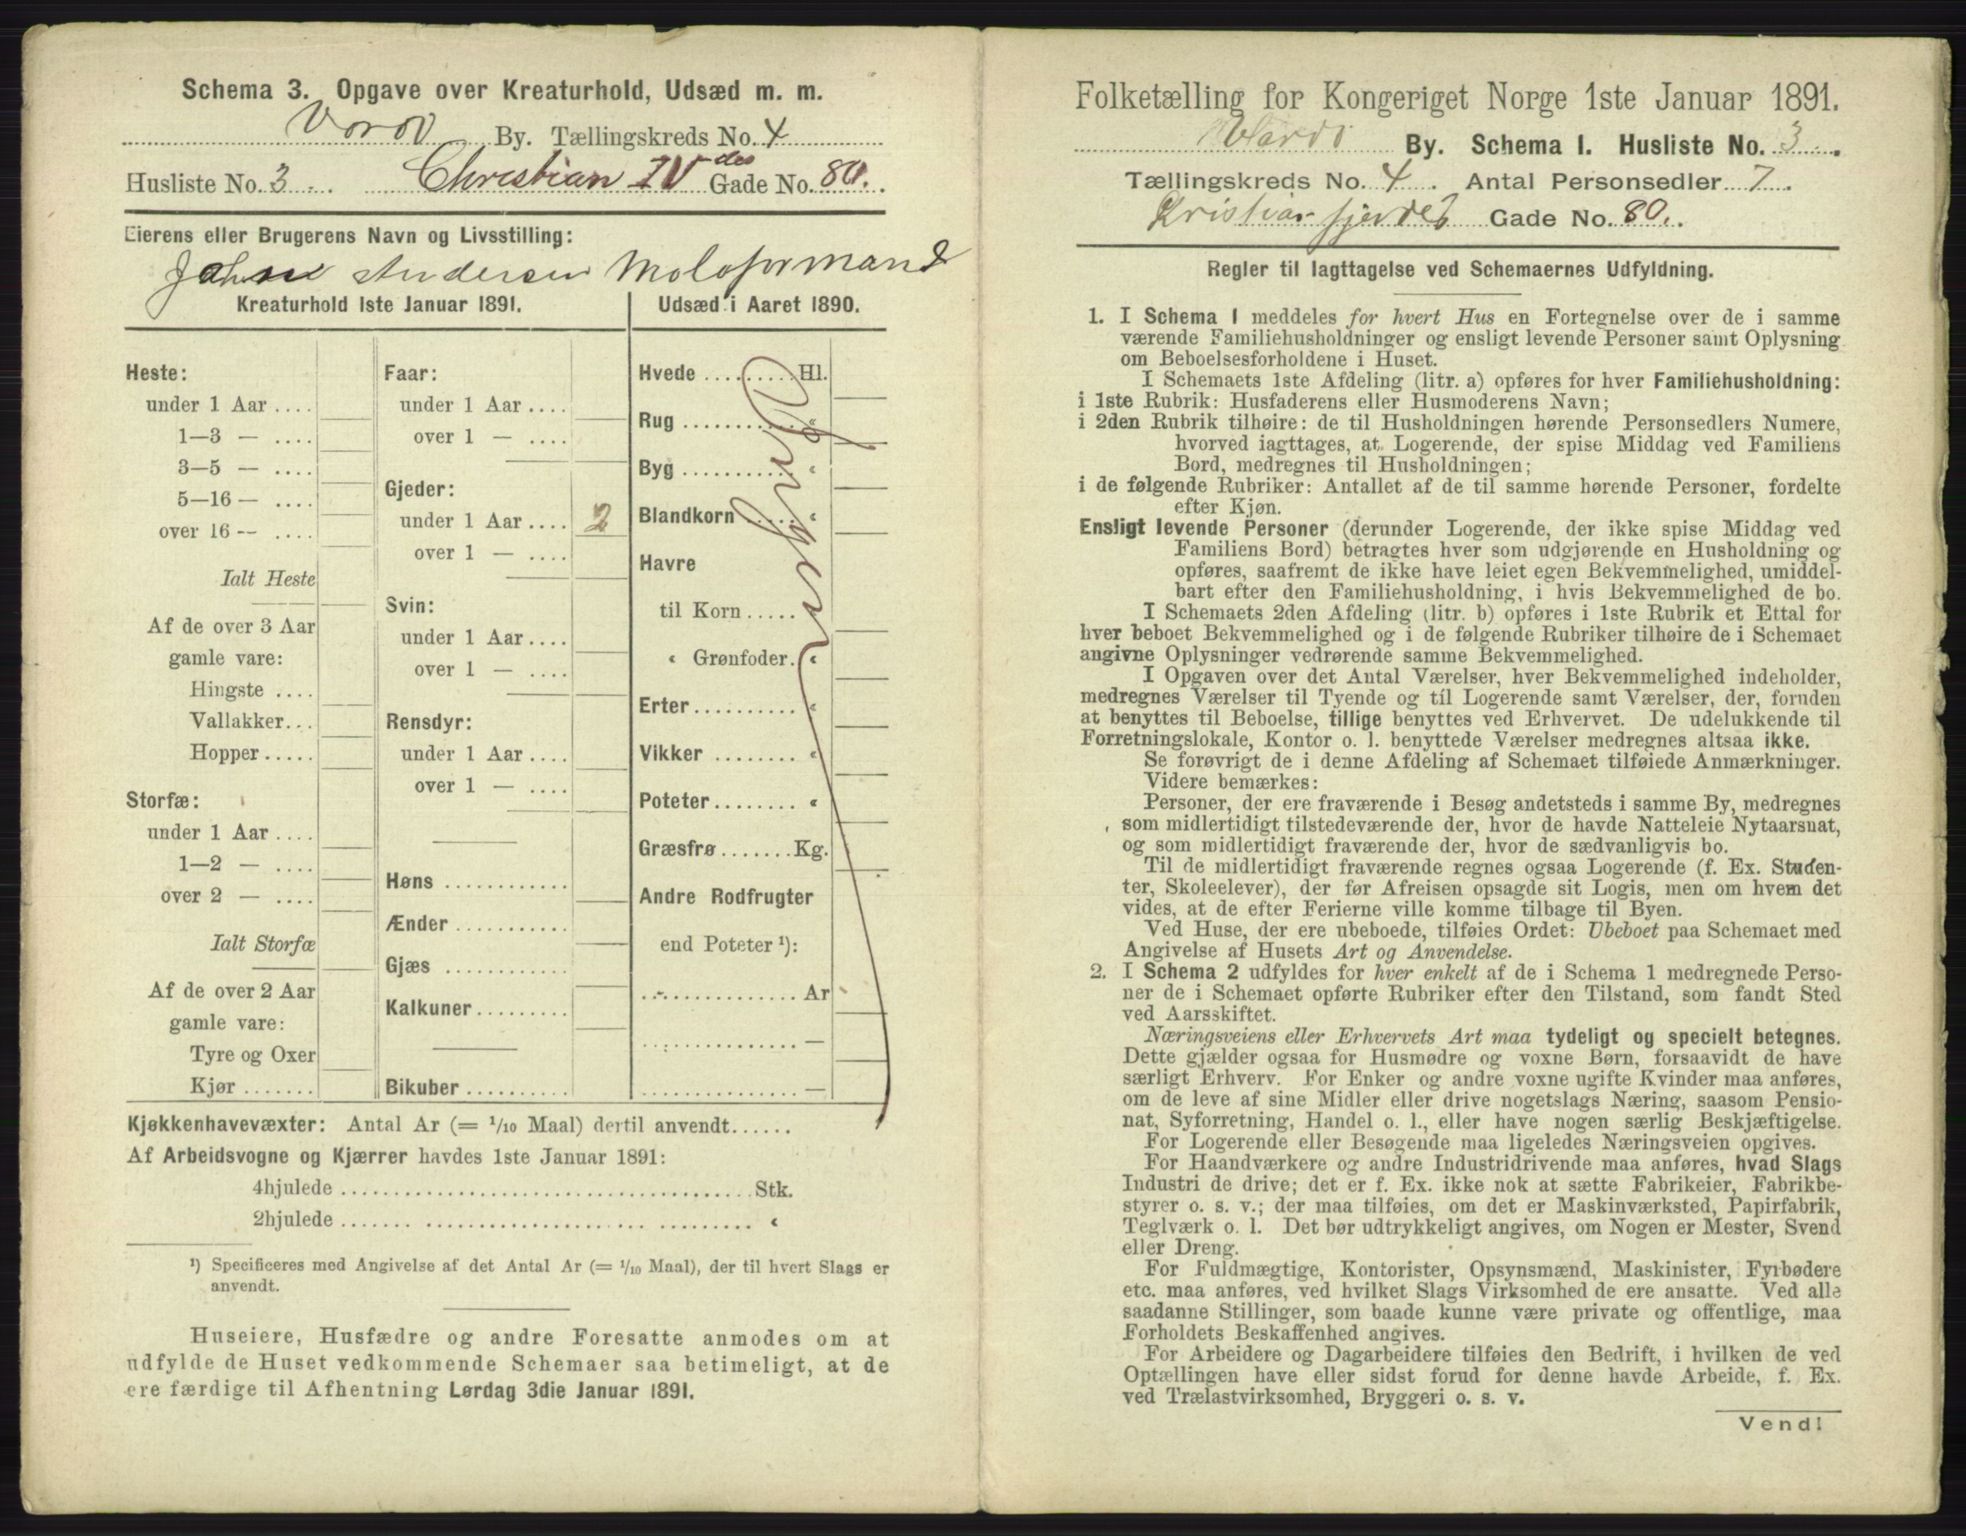 Schema 3. Opgave over Kreaturhold, Udsæd m. m.
By. Tællingskreds No. 4
Husliste No. 3 Christian IV des Gade No. 80.
Eierens eller Brugerens Navn og Livsstilling:
Andersen Moloformand
Kreaturhold 1ste Januar 1891.
Heste:
under 1 Aar ....
1—3 — ....
3—5 — ....
5—16 — ....
over 16 -- ....
Ialt Heste
Af de over 3 Aar
gamle vare:
Hingste ....
Vallakker...
Hopper.....
Storfæ:
under 1 Aar ....
1—2 — ....
over 2 — ....
Ialt Storfæ
Af de over 2 Aar
gamle vare:
Tyre og Oxer
Kjør .......
Faar:
under 1 Aar ....
over 1 — ....
Gjeder:
under 1 Aar .... 2
over 1 — ....
Svin:
under 1 Aar ....
over 1 — ....
Rensdyr:
under 1 Aar ....
over 1 — ....
Høns ............
Ænder ...........
Gjæs ............
Kalkuner.........
Bikuber ..........
Udsæd i Aaret 1890.
Hvede ......... Hl.
Rug ........... «
Byg ........... «
Blandkorn ..... «
Havre
til Korn ..... «
« Grønfoder. «
Erter.......... «
Vikker ........ «
Poteter........ «
Græsfrø....... Kg.
Andre Rodfrugter
end Poteter ¹):
.............. Ar
.............. —
.............. —
Kjøkkenhavevæxter: Antal Ar (= 1/10 Maal) dertil anvendt......
Af Arbeidsvogne og Kjærrer havdes 1ste Januar 1891:
4hjulede ..................................... Stk.
2hjulede ..................................... «
¹) Specificeres med Angivelse af det Antal Ar (= 1/10 Maal), der til hvert Slags er
anvendt.
Huseiere, Husfædre og andre Foresatte anmodes om at
udfylde de Huset vedkommende Schemaer saa betimeligt, at de
ere færdige til Afhentning Lørdag 3die Januar 1891.
Folketælling for Kongeriget Norge 1ste Januar 1891.
Vardö By. Schema I. Husliste No. 3.
Tællingskreds No. 4. Antal Personsedler 7.
Kristian fjerdes Gade No. 80.
Regler til Iagttagelse ved Schemaernes Udfyldning.
1. I Schema 1 meddeles for hvert Hus en Fortegnelse over de i samme
værende Familiehusholdninger og ensligt levende Personer samt Oplysning
om Beboelsesforholdene i Huset.
I Schemaets 1ste Afdeling (litr. a) opføres for hver Familiehusholdning:
i 1ste Rubrik: Husfaderens eller Husmoderens Navn;
i 2den Rubrik tilhøire: de til Husholdningen hørende Personsedlers Numere,
hvorved iagttages, at Logerende, der spise Middag ved Familiens
Bord, medregnes til Husholdningen;
i de følgende Rubriker: Antallet af de til samme hørende Personer, fordelte
efter Kjøn.
Ensligt levende Personer (derunder Logerende, der ikke spise Middag ved
Familiens Bord) betragtes hver som udgjørende en Husholdning og
opføres, saafremt de ikke have leiet egen Bekvemmelighed, umiddel-
bart efter den Familiehusholdning, i hvis Bekvemmelighed de bo.
I Schemaets 2den Afdeling (litr. b) opføres i 1ste Rubrik et Ettal for
hver beboet Bekvemmelighed og i de følgende Rubriker tilhøire de i Schemaet
angivne Oplysninger vedrørende samme Bekvemmelighed.
I Opgaven over det Antal Værelser, hver Bekvemmelighed indeholder,
medregnes Værelser til Tyende og til Logerende samt Værelser, der, foruden
at benyttes til Beboelse, tillige benyttes ved Erhvervet. De udelukkende til
Forretningslokale, Kontor o. l. benyttede Værelser medregnes altsaa ikke.
Se forøvrigt de i denne Afdeling af Schemaet tilføiede Anmærkninger.
Videre bemærkes:
Personer, der ere fraværende i Besøg andetsteds i samme By, medregnes
som midlertidigt tilstedeværende der, hvor de havde Natteleie Nytaarsnat,
og som midlertidigt fraværende der, hvor de sædvanligvis bo.
Til de midlertidigt fraværende regnes ogsaa Logerende (f. Ex. Studen-
ter, Skoleelever), der før Afreisen opsagde sit Logis, men om hvem det
vides, at de efter Ferierne ville komme tilbage til Byen.
Ved Huse, der ere ubeboede, tilføies Ordet: Ubeboet paa Schemaet med
Angivelse af Husets Art og Anvendelse.
2. I Schema 2 udfyldes for hver enkelt af de i Schema 1 medregnede Perso-
ner de i Schemaet opførte Rubriker efter den Tilstand, som fandt Sted
ved Aarsskiftet.
Næringsveiens eller Erhvervets Art maa tydeligt og specielt betegnes.
Dette gjælder ogsaa for Husmødre og voxne Børn, forsaavidt de have
særligt Erhverv. For Enker og andre voxne ugifte Kvinder maa anføres,
om de leve af sine Midler eller drive nogetslags Næring, saasom Pensio-
nat, Syforretning, Handel o. l., eller have nogen særlig Beskjæftigelse.
For Logerende eller Besøgende maa ligeledes Næringsveien opgives.
For Haandværkere og andre Industridrivende maa anføres, hvad Slags
Industri de drive; det er f. Ex. ikke nok at sætte Fabrikeier, Fabrikbe-
styrer o. s. v.; der maa tilføies, om det er Maskinværksted, Papirfabrik,
Teglværk o. l. Det bør udtrykkeligt angives, om Nogen er Mester, Svend
eller Dreng.
For Fuldmægtige, Kontorister, Opsynsmænd, Maskinister, Fyrbødere
etc. maa anføres, ved hvilket Slags Virksomhed de ere ansatte. Ved alle
saadanne Stillinger, som baade kunne være private og offentlige, maa
Forholdets Beskaffenhed angives.
For Arbeidere og Dagarbeidere tilføies den Bedrift, i hvilken de ved
Optællingen have eller sidst forud for denne havde Arbeide, f. Ex.
ved Trælastvirksomhed, Bryggeri o. s. v.
Vend!